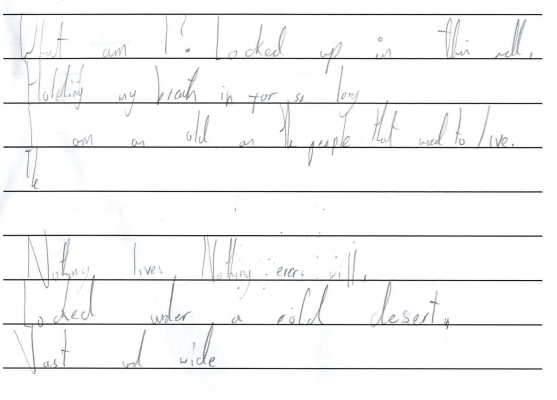 What am I? Locked up in this cell,
Holding my breath in for so long
I am as old as the people that used to live.
The
Nothing lives, Nothing ever will,
Locked under a cold desert,
Vast and wide